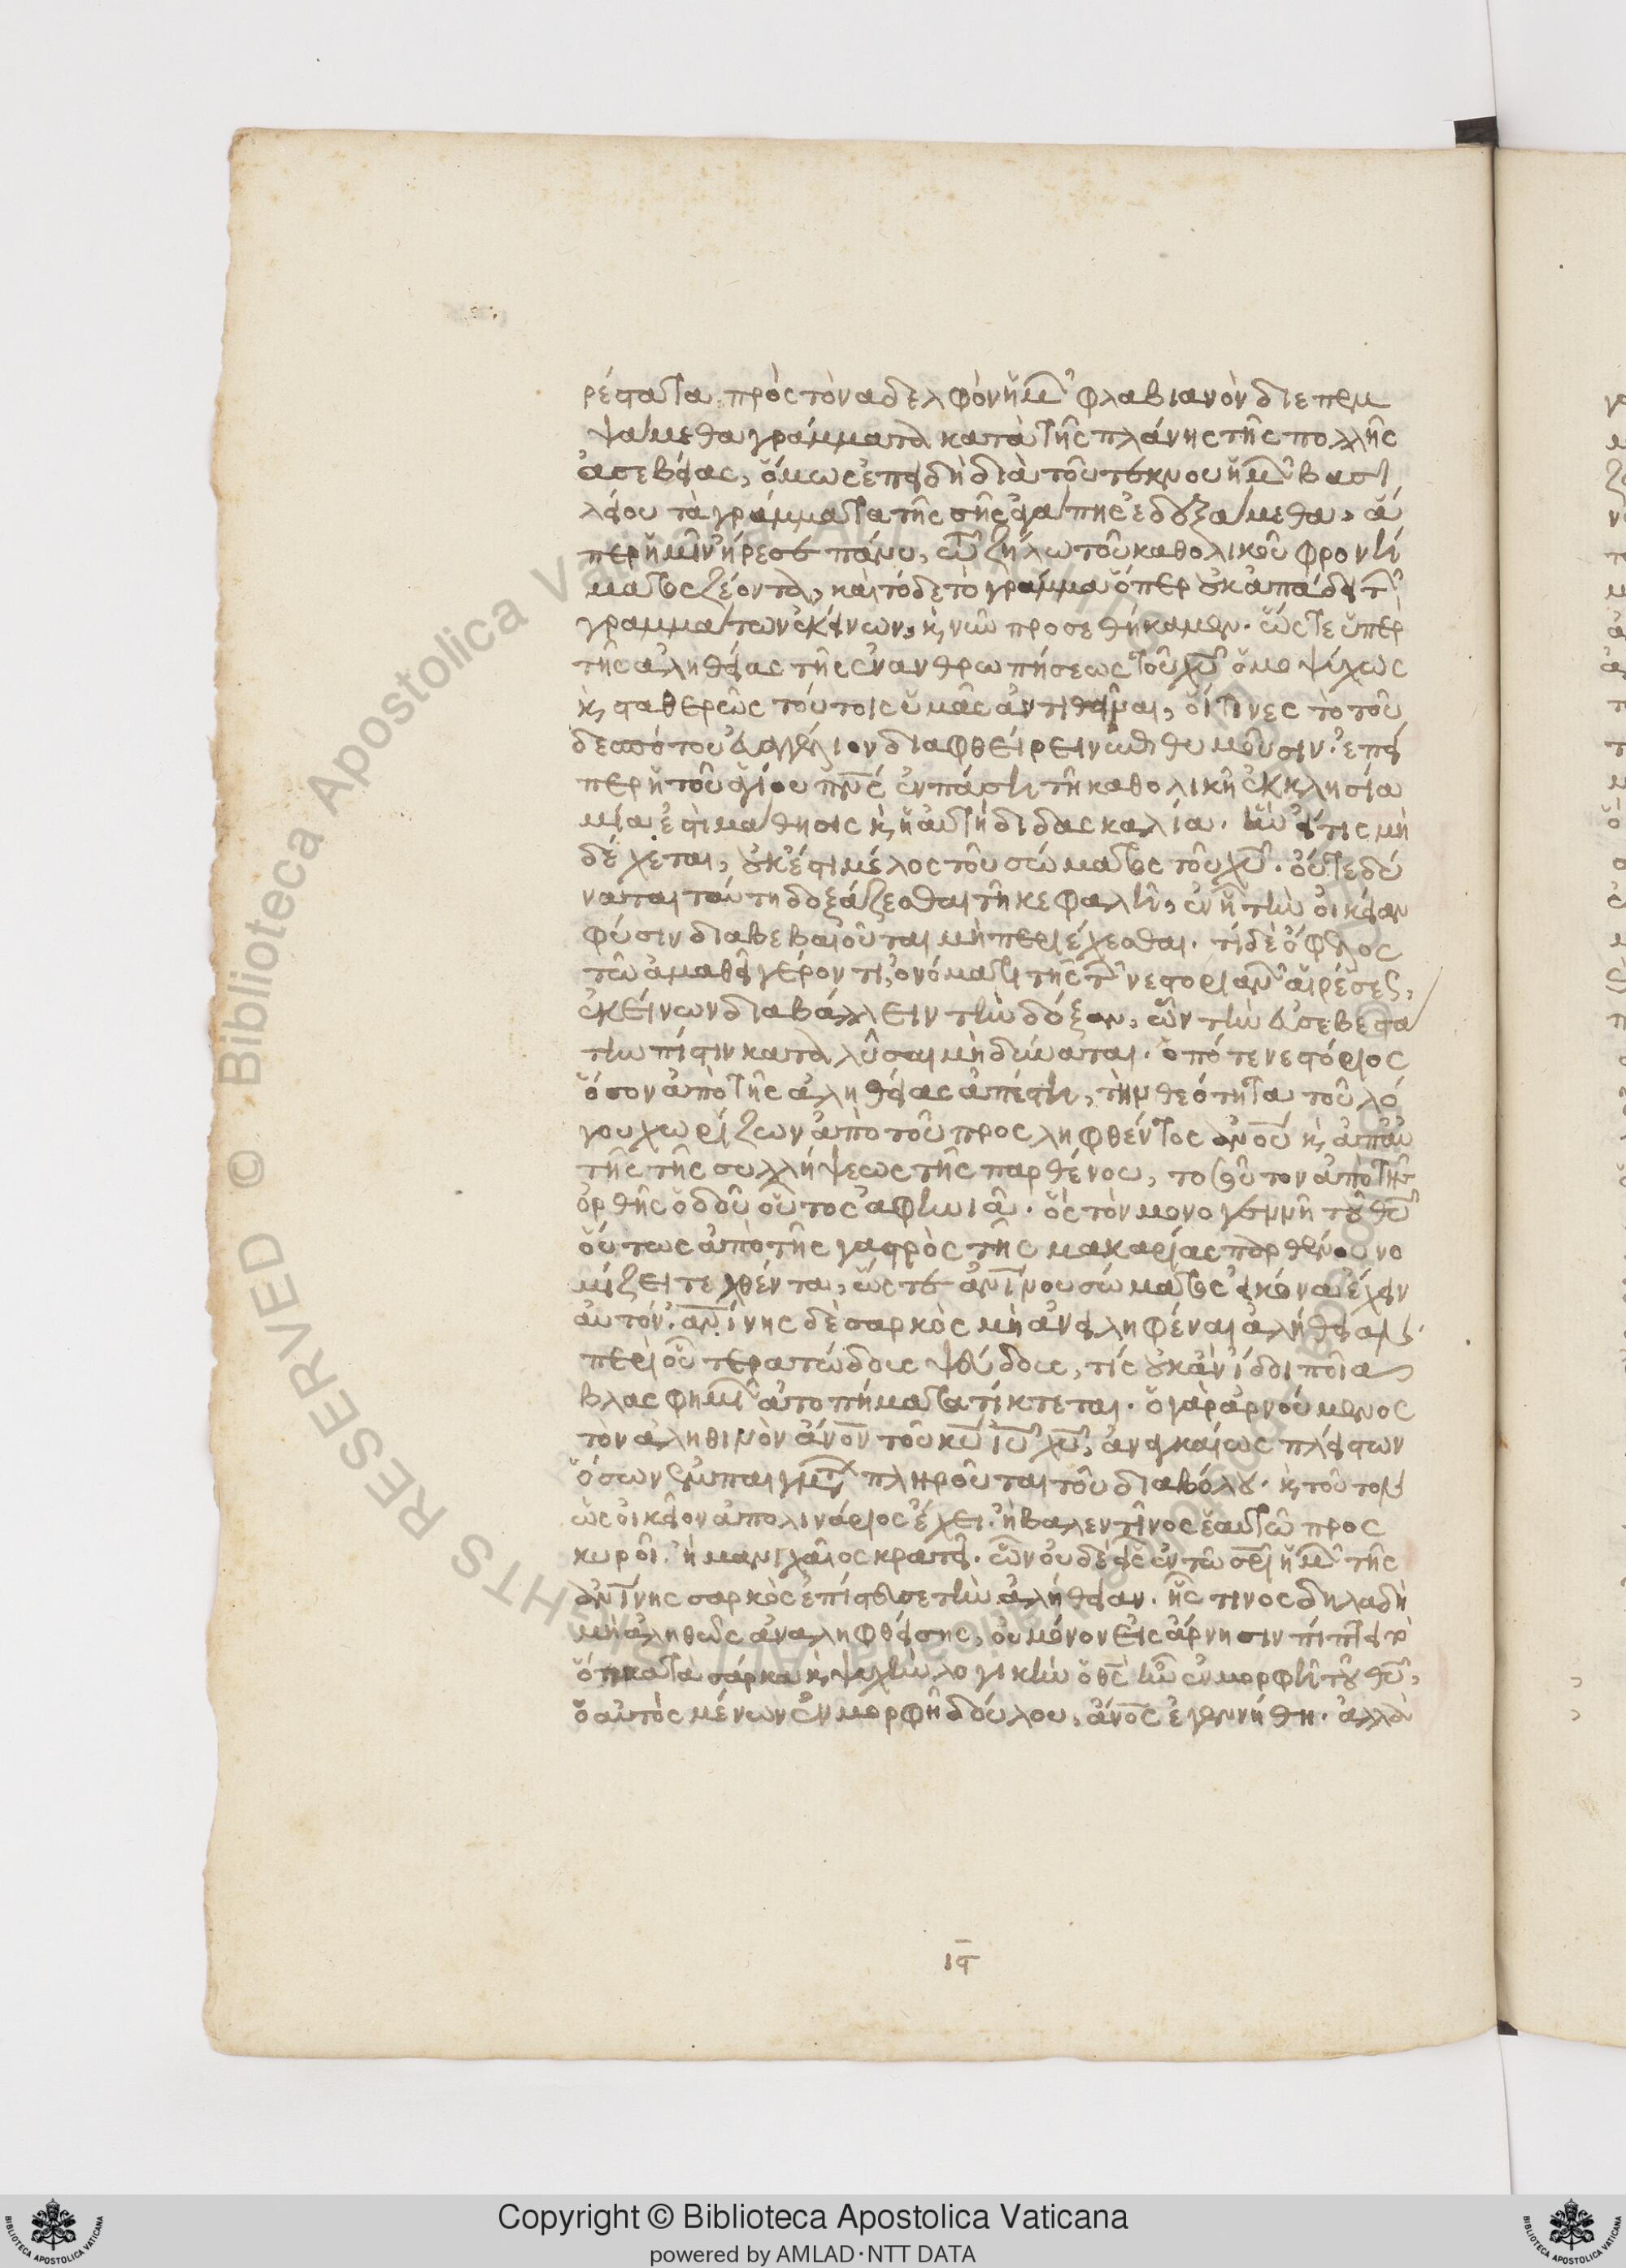 ρέσατα πρὸς τὸν ἀδελφὸν ἡμῶν φλαβιανὸν διεπεμ
ψάμεθα γράμματα κατὰ τῆς πλάνης τῆς πολλῆς
ἀσεβείας, ὅμως ἐπειδὴ διὰ τοῦ τέκνου ἡμῶν βασι
λείου τὰ γράμματα τῆς σῆς ἀγάπης ἐδεξάμεθα, ἅ
περ ἡμῖν ἤρεσε πάνυ, τῶ ζήλω τοῦ καθολικοῦ φρονή
ματος ζέοντα, καὶ τόδε τὸ γράμμα ὅπερ οὐκ ἀπάδει τῶν
γραμμάτων ἐκείνων, κ, νῦν προσεθήκαμεν. ὥστε ὑπὲρ
τῆς ἀληθείας τῆς ἐνανθρωπήσεως τοῦ χῦ ὁμοψύχως
κ, σταθερῶς τούτοις ὑμᾶς ἀντιθεῖναι, οἵτινες τὸ τοῦ
δεσπότου εὐαγγέλιον διαφθείρειν ἐπιθυμοῦσιν. ἐπεί
περ ἡ τοῦ ἁγίου πνς ἐν πάσῃ τῆ καθολικῆ ἐκκλησία
μία ἐστὶ μάθησις κ, ἡ αὐτὴ διδασκαλία. ἣν εἴ τις μὴ
δέχεται, οὐκ ἔστι μέλος τοῦ σώματος τοῦ χῦ. οὔτε δύ
ναται ταύτη δοξάζεσθαι τῆ κεφαλῆ, ἐν ἧ τὴν οἰκείαν
φύσιν διαβεβαιοῦται μὴ περιέχεσθαι. τί δὲ ὄφελος
τῶ ἀμαθεῖ γέροντι, ὀνόματι τῆς τῶν νεστοριανῶν αἱρέσεως,
ἐκείνων διαβάλλειν τὴν δόξαν, ὧν τὴν εὐσεβεστά
την πίστιν καταλῦσαι μὴ δύναται. ὁπότε νεστόριος
ὅσον ἀπὸ τῆς ἀληθείας ἀπέστη, τὴν θεότητα τοῦ λό
γου χωρίζων ἀπὸ τοῦ προσληφθέντος ἀνοῦ κ, ἀπ' αὐ
τῆς τῆς συλλήψεως τῆς παρθένου, τοσοῦτον ἀπὸ τῆς
ὀρθῆς ὁδοῦ οὗτος ἀφηνιᾶ. ὃς τὸν μονογενῆ τοῦ θῦ
οὕτως ἀπὸ τῆς γαστρὸς τῆς μακαρίας παρθένου νο
μίζει τεχθέντα, ὥστε ἀνίνου σώματος εἰκόνα ἔχειν
αὐτόν. ἀνίνης δὲ σαρκὸς μὴ ἀνειληφέναι ἀλήθειαν.
περὶ οὗ τερατώδους ψεύδους, τίς οὐκ ἂν ἴδοι ποῖα
βλασφημιῶν ἀτοπήματα τίκτεται. ὁ γὰρ ἀρνούμενος
τὸν ἀληθινὸν ἄνον τοῦ κῦ ἰῦ χῦ, ἀναγκαίως πλείστων
ὅσων ἐμπαιγμάτων πληροῦται τοῦ διαβόλου. κ, τοῦτον
ὡς οἰκεῖον ἀπολινάριος ἔχει. ἢ βαλεντῖνος ἑαυτῶ προς
κυροῖ. ἢ μανιχαῖος κρατεῖ. ὧν οὐδεὶς ἐν τῶ σρι ἡμῶν τῆς
ἀνίνης σαρκὸς ἐπίστευσε τὴν ἀλήθειαν. ἧς τινος δηλαδὴ
μὴ ἀληθῶς ἀναληφθείσης, οὐ μόνον εἰς ἄρνησιν πίπτει
ὅτι κατὰ σάρκα κ, ψυχὴν λογικὴν ὁ θς ἦν ἐν μορφῆ τοῦ θῦ,
ὁ αὐτὸς μένων ἐν μορφῆ δούλου, ἄνος ἐγεννήθη. ἀλλὰ
ιϛ
Copyright © Biblioteca Apostolica Vaticana
powered by AMLAD·NTT DATA